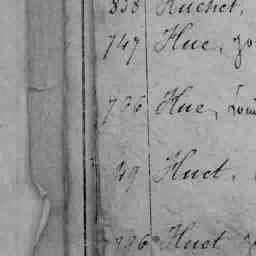 838 Huchet,
747 Hue, Jo
706 Hue, Loui
49 Huet,
796 Huot